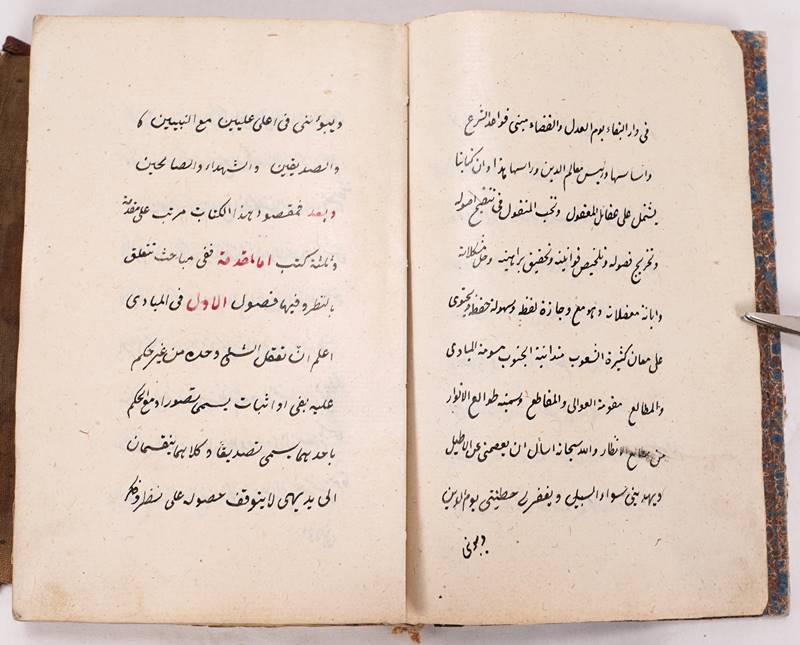 فى دار البقاء يوم العدل والقضاء مبنى قواعد الشرع
واساسها ورئيس معالم الدين وراسها هذا وان كتابنا
يشتمل على عقائل المعقول ونخب المنقول فى تنقيح اصوله
وتخريج فصوله وتلخيص قوانينه وتحقيق براهينه وحل مشكلاته
وابانة معضلاته وهو مع وجازة لفظه وسهولة حفظه يحتوى
على معان كثيرة الشعوب متدانية الجنوب مسومة المبادى
والمطالع مقومة العوالى والمقاطع وسميته طوالع الانوار
من مطالع الانظار والله سبحانه اسأل ان يعصمنى عن الاباطيل
ويهدينى سواء السبيل ويغفر لى خطيئتى يوم الدين
ويبوئنى
ويبوئنى فى اعلى عليين مع النبيين
والصديقين والشهداء والصالحين
وبعد فمقصود هذا الكتاب مرتب على مقدمة
وثلثة كتب اما المقدمة ففى مباحث تتعلق
بالنظر وفيها فصول الاول فى المبادى
اعلم ان تعقل الشئ وحده من غير حكم
عليه بنفى او اثبات يسمى تصورا ومع الحكم
باحدهما يسمى تصديقا وكلاهما ينقسمان
الى بديهى لا يتوقف حصوله على نظر وفكر